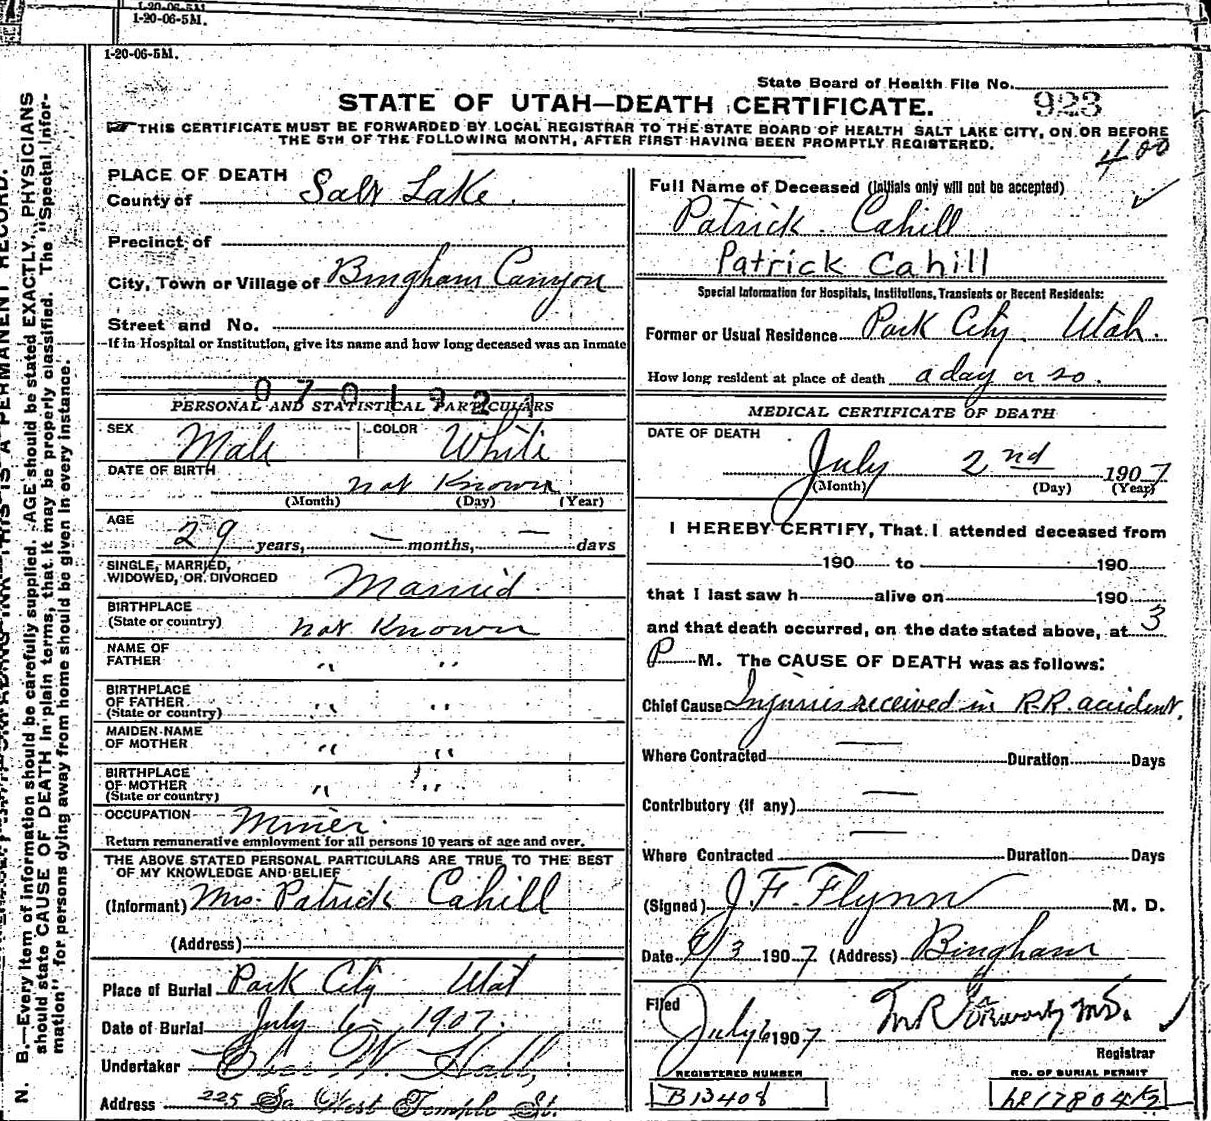 1-20-06-5M.
1-20-06-5M.
1-20-06-5M.
State Board of Health File No. 923
STATE OF UTAH—DEATH CERTIFICATE.
THIS CERTIFICATE MUST BE FORWARDED BY LOCAL REGISTRAR TO THE STATE BOARD OF HEALTH SALT LAKE CITY, ON OR BEFORE
THE 5TH OF THE FOLLOWING MONTH, AFTER FIRST HAVING BEEN PROMPTLY REGISTERED.
400
PLACE OF DEATH
County of Salt Lake.
Precinct of
City, Town or Village of Bingham Canyon
Street and No.
If in Hospital or Institution, give its name and how long deceased was an inmate
0701921
PERSONAL AND STATISTICAL PARTICULARS
SEX Male COLOR White
DATE OF BIRTH not Known
(Month) (Day) (Year)
AGE
29 years, — months, — days
SINGLE, MARRIED,
WIDOWED, OR DIVORCED Married.
BIRTHPLACE
(State or country) not Known
NAME OF
FATHER " "
BIRTHPLACE
OF FATHER
(State or country) " "
MAIDEN NAME
OF MOTHER " "
BIRTHPLACE
OF MOTHER
(State or country) " "
OCCUPATION Miner.
Return remunerative employment for all persons 10 years of age and over.
THE ABOVE STATED PERSONAL PARTICULARS ARE TRUE TO THE BEST
OF MY KNOWLEDGE AND BELIEF
(Informant) Mrs. Patrick Cahill
(Address)
Place of Burial Park City Utah
Date of Burial July 6 1907.
Undertaker Eber W. Hall,
Address 225 So West Temple St.
Full Name of Deceased (Initials only will not be accepted)
Patrick Cahill
Patrick Cahill
Special Information for Hospitals, Institutions, Transients or Recent Residents:
Former or Usual Residence Park City Utah.
How long resident at place of death a day or so.
MEDICAL CERTIFICATE OF DEATH
DATE OF DEATH
July 2nd 1907
(Month) (Day) (Year)
I HEREBY CERTIFY, That I attended deceased from
190 to 190
that I last saw h alive on 190
and that death occurred, on the date stated above, at 3
P M. The CAUSE OF DEATH was as follows:
Chief Cause Injuries received in R.R. accident.
Where Contracted — Duration Days
Contributory (if any) —
Where Contracted — Duration Days
(Signed) J. F. Flynn M. D.
Date 7/3 1907 (Address) Bingham
Filed
July 6 1907
Registrar
REGISTERED NUMBER
B13408
NO. OF BURIAL PERMIT
N. B.—Every item of information should be carefully supplied. AGE should be stated EXACTLY. PHYSICIANS
should state CAUSE OF DEATH in plain terms, that it may be properly classified. The "Special Infor-
mation" for persons dying away from home should be given in every instance.
THIS IS A PERMANENT RECORD.